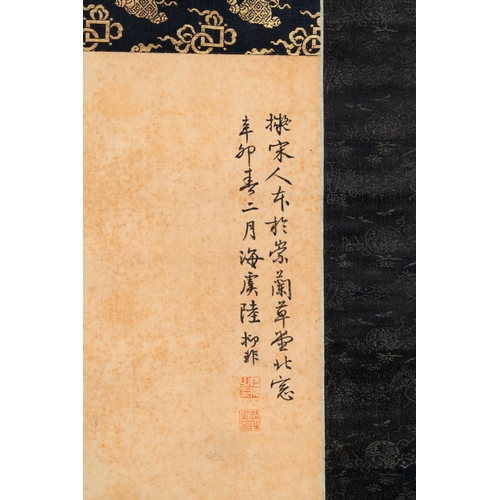 擬宋人本於崇蘭草堂北窓
辛卯春二月海虞陸抑非